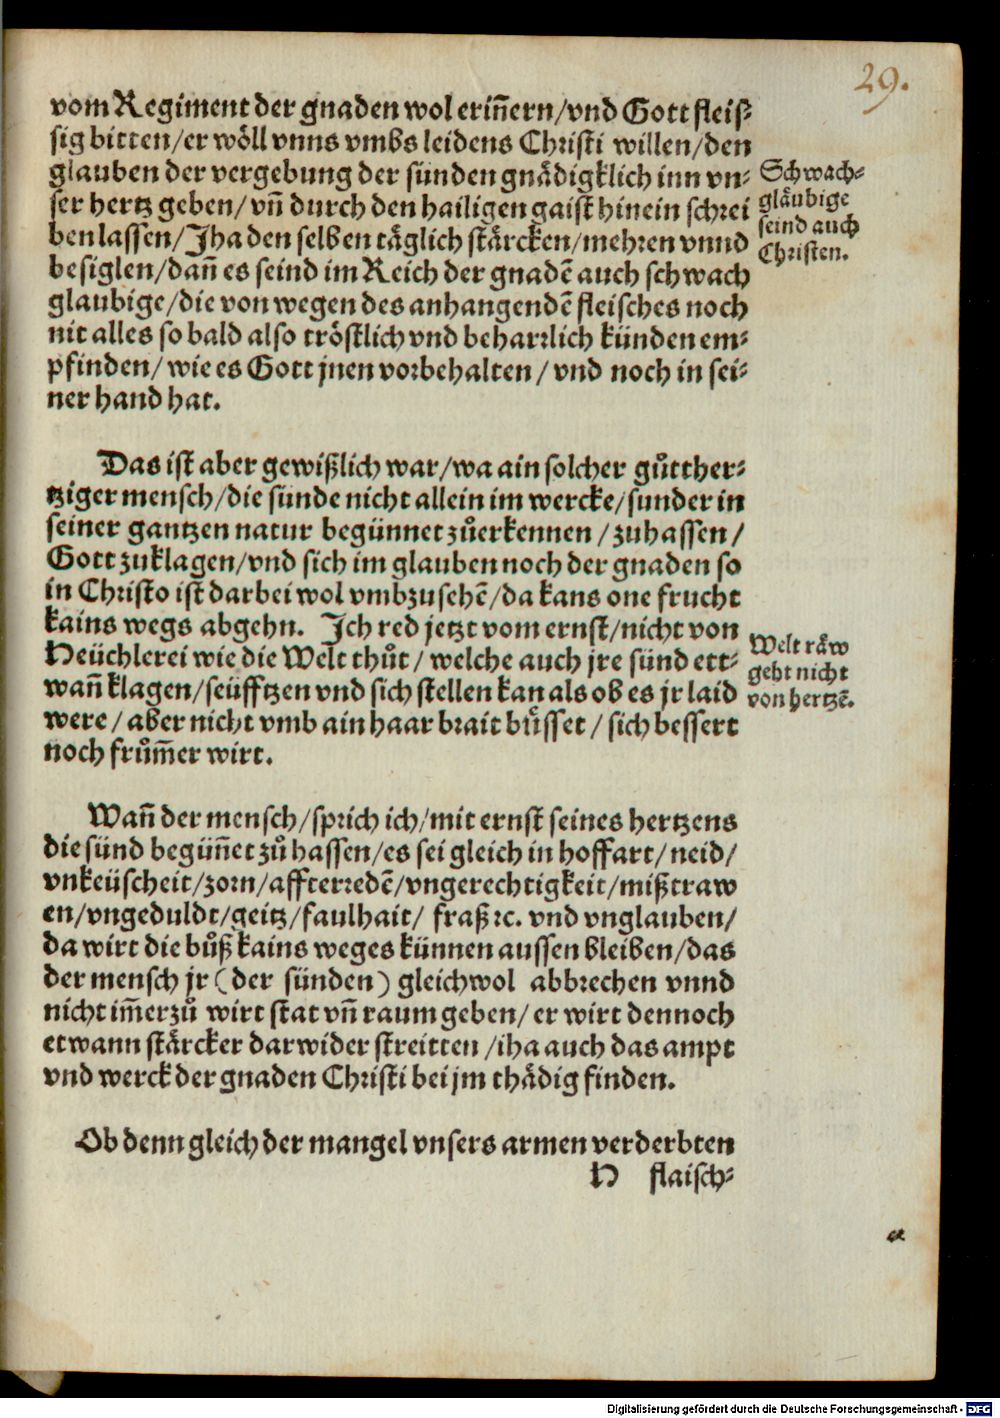 29.
vom Regiment der gnaden wol eriñern/vnd Gott fleis⸗
sig bitten/er wöll vnns vmbs leidens Christi willen/den
glauben der vergebung der sünden gnädigklich inn vn⸗
ser hertz geben/vñ durch den hailigen gaist hinein schrei
ben lassen/Jha den selben täglich stärcken/mehren vnnd
besiglen/dañ es seind im Reich der gnadē auch schwach
glaubige/die von wegen des anhangendē fleisches noch
nit alles so bald also tröstlich vnd beharrlich künden em⸗
pfinden/wie es Gott jnen vorbehalten/vnd noch in sei⸗
ner hand hat.
Schwach⸗
gläubige
seind auch
Christen.
Das ist aber gewißlich war/wa ain solcher gůtther⸗
tziger mensch/die sünde nicht allein im wercke/sunder in
seiner gantzen natur begünnet zůerkennen/zuhassen/
Gott zuklagen/vnd sich im glauben noch der gnaden so
in Christo ist darbei wol vmbzusehē/da kans one frucht
kains wegs abgehn. Ich red jetzt vom ernst/nicht von
Heüchlerei wie die Welt thůt/welche auch jre sünd ett⸗
wañ klagen/seüfftzen vnd sich stellen kan als ob es jr laid
were/aber nicht vmb ain haar brait bůsset/sich bessert
noch frům̃er wirt.
Welt räw
geht nicht
von hertzē.
Wañ der mensch/sprich ich/mit ernst seines hertzens
die sünd begüñet zů hassen/es sei gleich in hoffart/neid/
vnkeüscheit/zorn/affterredē/vngerechtigkeit/mißtraw
en/vngeduldt/geitz/faulhait/fraß ꝛc. vnd vnglauben/
da wirt die bůß kains weges künnen aussen bleiben/das
der mensch jr (der sünden) gleichwol abbrechen vnnd
nicht im̃erzů wirt stat vñ raum geben/er wirt dennoch
etwann stärcker darwider streitten/iha auch das ampt
vnd werck der gnaden Christi bei jm thädig finden.
Ob denn gleich der mangel vnsers armen verderbten
H flaisch⸗
Digitalisierung gefördert durch die Deutsche Forschungsgemeinschaft - DFG